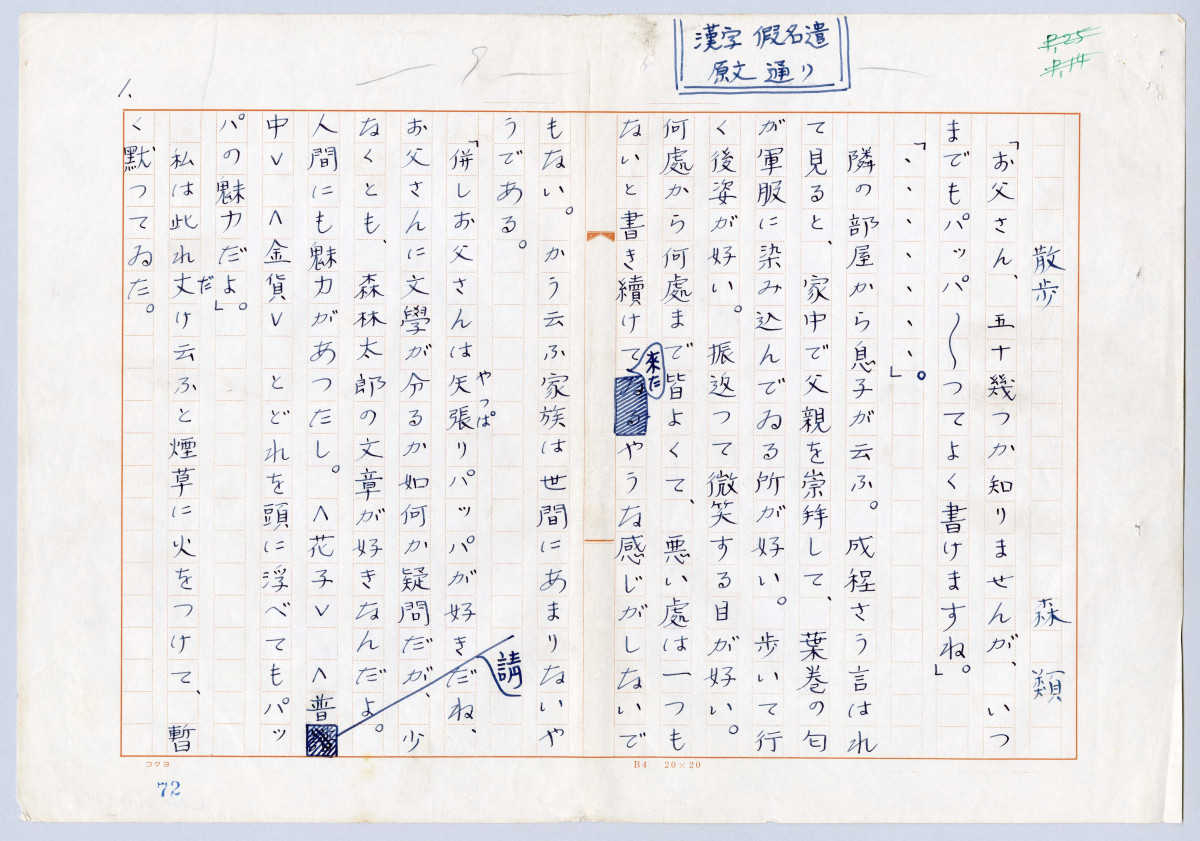 漢字 假名遣
原文 通り
P.25
P.14
1.
散歩 森 類
「お父さん、五十幾つか知りませんが、いつ
までもパッパ〳〵つてよく書けますね。」
「、、、、、、、」。
隣の部屋から息子が云ふ。成程さう言はれ
て見ると、家中で父親を崇拜して、葉巻の匂
が軍服に染み込んでゐる所が好い。歩いて行
く後姿が好い。振返つて微笑する目が好い。
何處から何處まで皆よくて、悪い處は一つも
ないと書き續けて來たやうな感じがしないで
もない。かう云ふ家族は世間にあまりないや
うである。
「併しお父さんは矢張りパッパが好きだね、
やつぱ
お父さんに文學が分るか如何か疑問だが、少
なくとも、森林太郎の文章が好きなんだよ。
人間にも魅力があつたし。＜花子＞ ＜普請
中＞ ＜金貨＞ とどれを頭に浮べてもパッ
パの魅力だよ」。
私は此れ丈け云ふと煙草に火をつけて、暫
だ
く默つてゐた。
コクヨ
72
B4 20×20